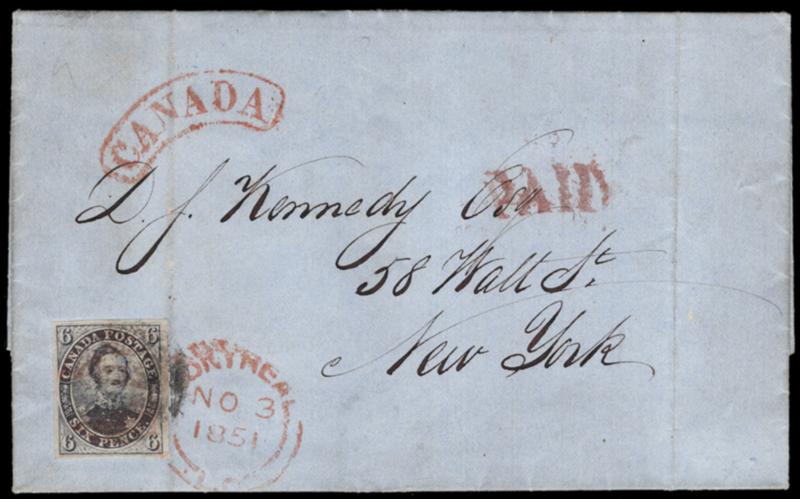 CANADA
PAID
D. J. Kennedy Esq
58 Wall St.
New York
6 CANADA POSTAGE 6
6 SIX PENCE 6
MONTREAL
NO 3
1851